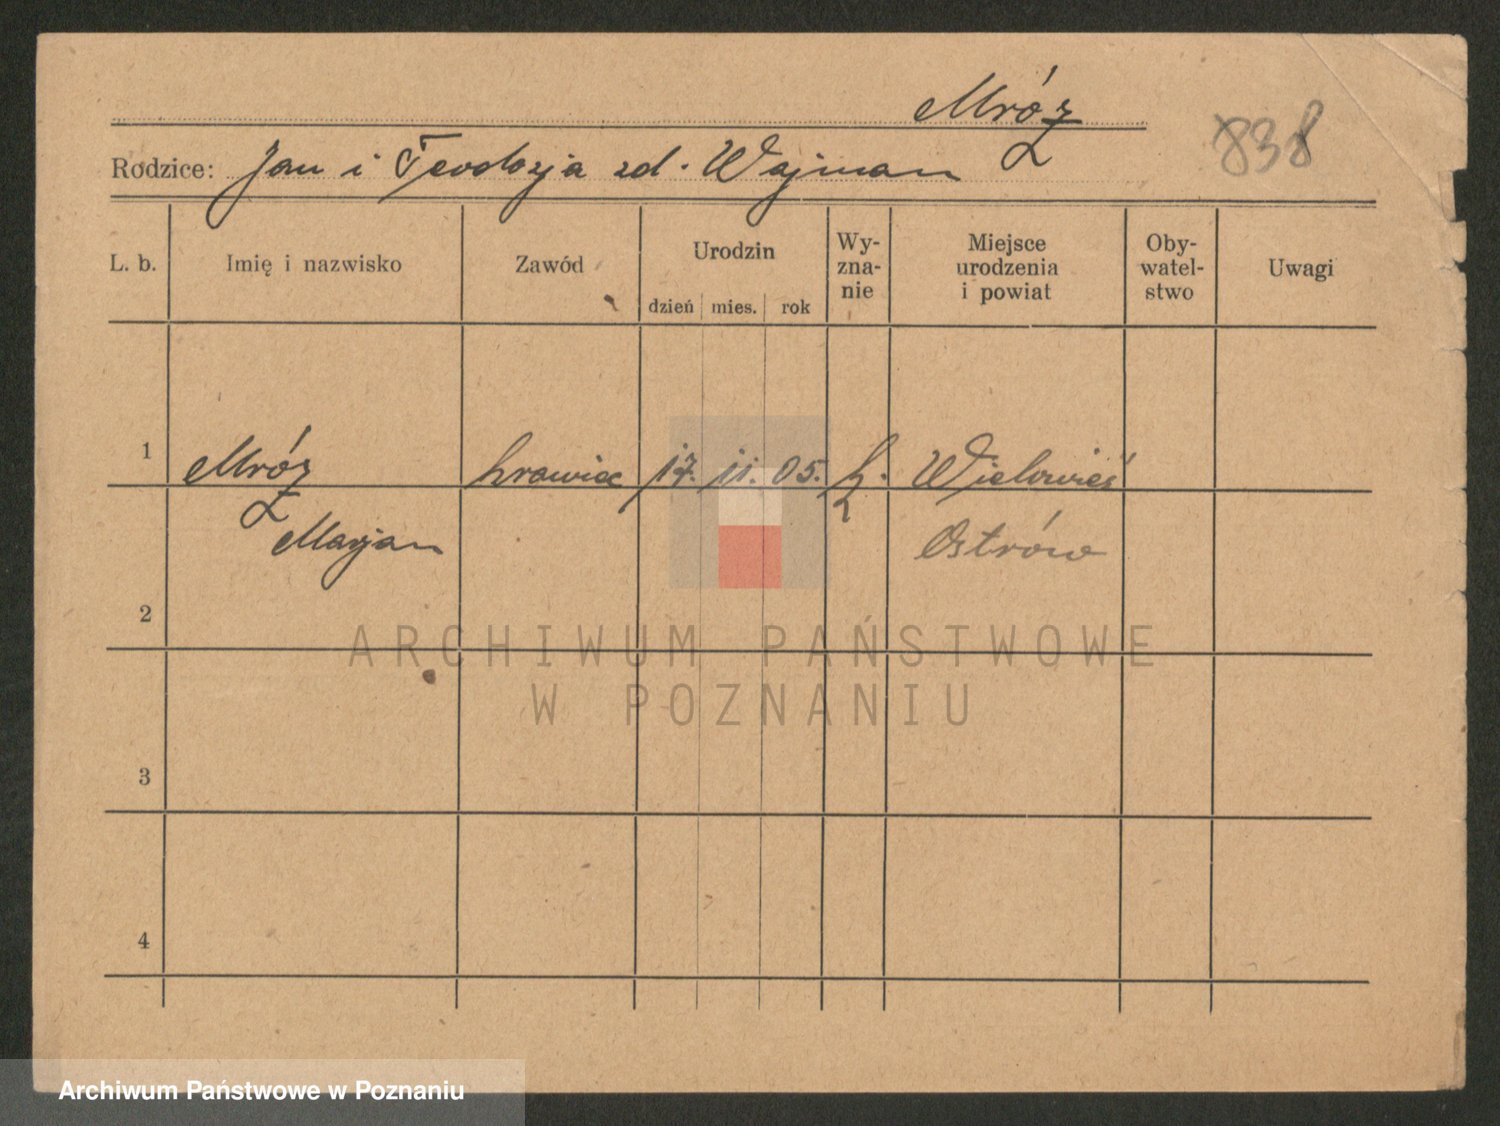 Mróz
838
Rodzice: Jan i Teodozja zd. Wajman
L. b. Imię i nazwisko Zawód Urodzin dzień mies. rok Wy-zna-nie Miejsce urodzenia i powiat Oby-watel-stwo Uwagi
1 Mróz krawiec 17. 11. 05. k. Wielowieś
Marjan Ostrów
2
ARCHIWUM PAŃSTWOWE
W POZNANIU
3
4
Archiwum Państwowe w Poznaniu